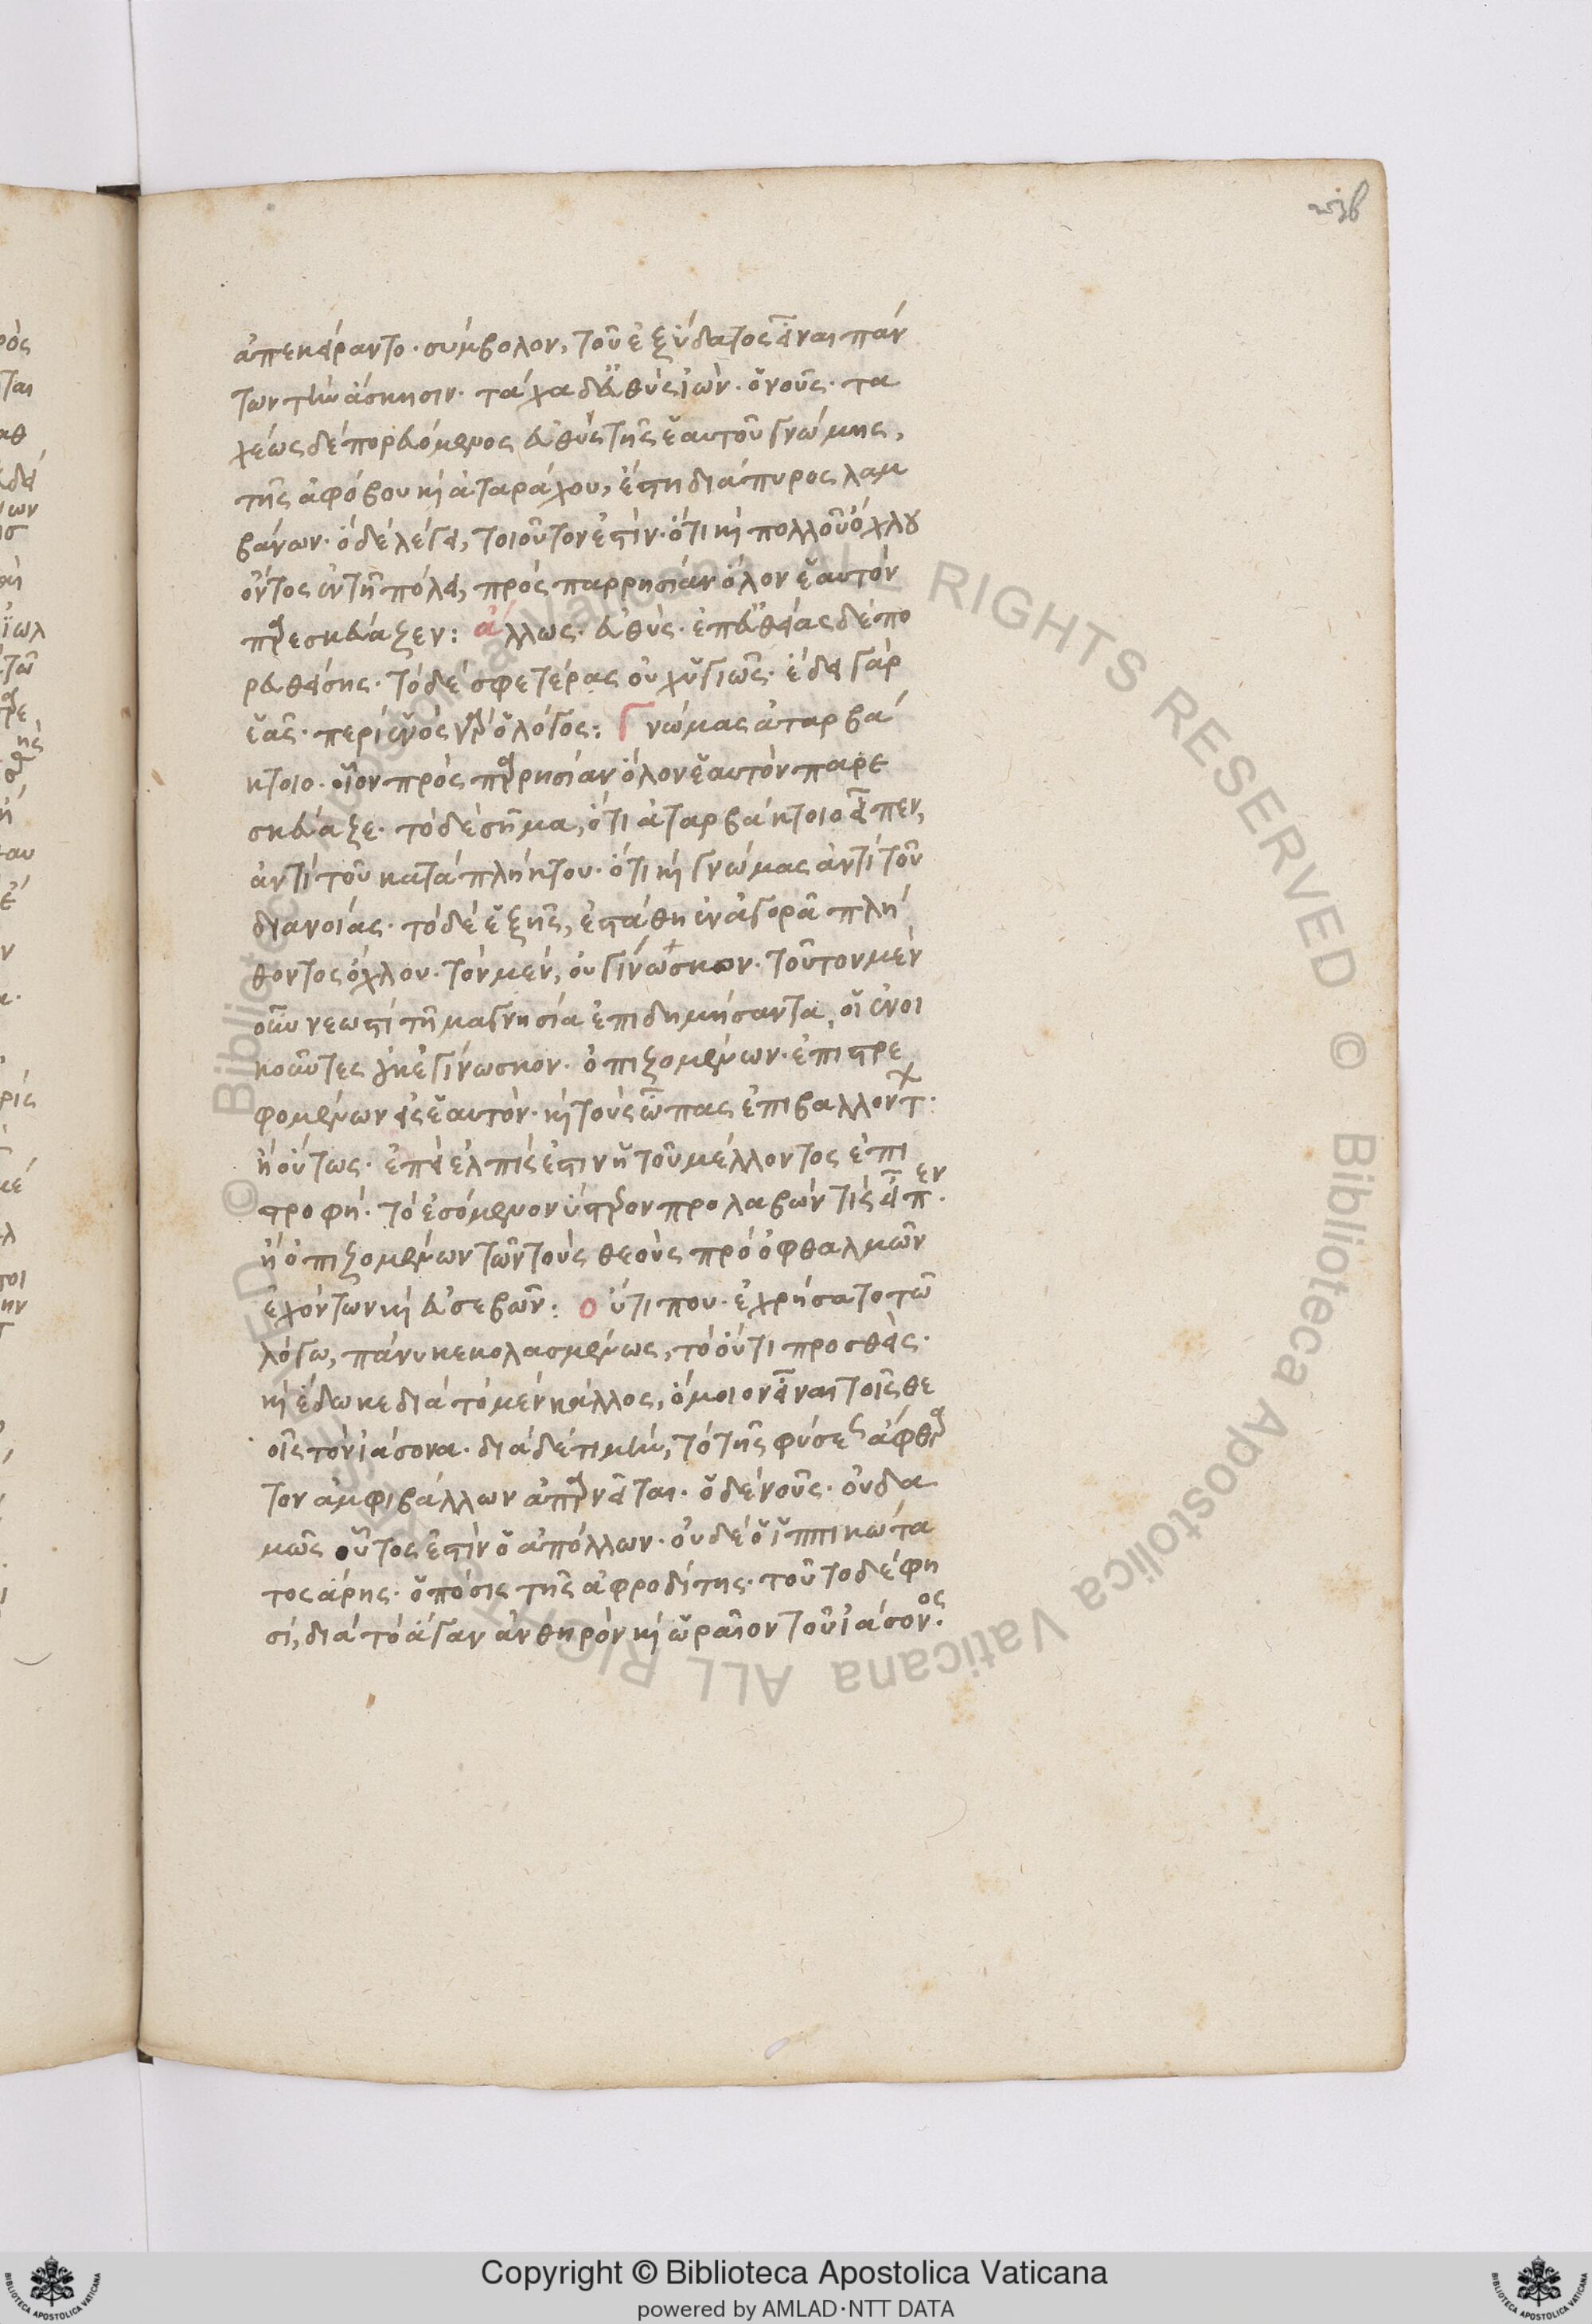 ἀπεκείραντο· σύμβολον, τοῦ ἐξ ὕδατος εἶναι πάν
των τὴν ἄσκησιν· τάχα δ' εὐθὺς ἰών· ὁ νοῦς· τα
χέως δὲ πορευόμενος εὐθὺς τῆς ἑαυτοῦ γνώμης,
τῆς ἀφόβου καὶ ἀταράχου, ἔστη διάπυρος λαμ
βάνων· ὃ δὲ λέγει, τοιοῦτον ἐστίν· ὅτι καὶ πολλοῦ ὄχλου
ὄντος ἐν τῇ πόλει, πρὸς παρρησίαν ὅλον ἑαυτὸν
παρεσκεύαζεν: ἄλλως· εὐθύς· ἐπ' εὐθείας δὲ πο
ρευθείσης· τὸ δὲ σφετέρας οὐχ ὑγιῶς· ἔδει γὰρ
ἑᾶς· περὶ ἑνὸς γὰρ ὁ λόγος: Γνώμας ἀταρβά
κτοιο· οἷον πρὸς παρρησίαν ὅλον ἑαυτὸν παρε
σκεύαζε· τὸ δὲ σῆμα, ὅτι ἀταρβάκτοιο εἶπεν,
ἀντὶ τοῦ καταπλήκτου· ὅτι καὶ γνώμας ἀντὶ τοῦ
διανοίας· τὸ δὲ ἑξῆς, ἐστάθη ἐν ἀγορᾷ πλή
θοντος ὄχλου· τὸν μέν, οὐ γίνωσκον· τοῦτον μὲν
οὖν νεωστὶ τῇ μαγνησίᾳ ἐπιδημήσαντα, οἱ ἐνοι
κοῦντες οὐκ ἐγίνωσκον· ὀπιζομένων· ἐπιστρε
φομένων εἰς ἑαυτόν· καὶ τοὺς ὦπας ἐπιβαλλοντ·
ἢ οὕτως· ἐπεὶ ἐλπίς ἐστιν ἡ τοῦ μέλλοντος ἐπι
στροφή· τὸ ἐσόμενον ὕστερον προλαβών τις εἶπεν·
ἢ ὀπιζομένων τῶν τοὺς θεοὺς πρὸ ὀφθαλμῶν
ἐχόντων καὶ εὐσεβῶν: οὔτι που· ἐχρήσατο τῷ
λόγῳ, πάνυ κεκολασμένως, τὸ οὔτι προσθείς·
καὶ ἔδωκε διὰ τὸ μὲν κάλλος, ὅμοιον εἶναι τοῖς θε
οῖς τὸν ἰάσονα· διὰ δέ τι μὴν, τὸ τῆς φύσεως ἄφθαρ
τον ἀμφιβάλλων ἀπαρνεῖται· ὁ δὲ νοῦς· οὐδα
μῶς οὗτος ἐστὶν ὁ ἀπόλλων· οὐδὲ ὁ ἱππικώτα
τος ἄρης· ὁ πόσις τῆς ἀφροδίτης· τοῦτο δέ φη
σί, διὰ τὸ ἄγαν ἀνθηρὸν καὶ ὡραῖον τοῦ ἰάσονος·
© Biblioteca Apostolica Vaticana ALL RIGHTS RESERVED
Copyright © Biblioteca Apostolica Vaticana
powered by AMLAD·NTT DATA